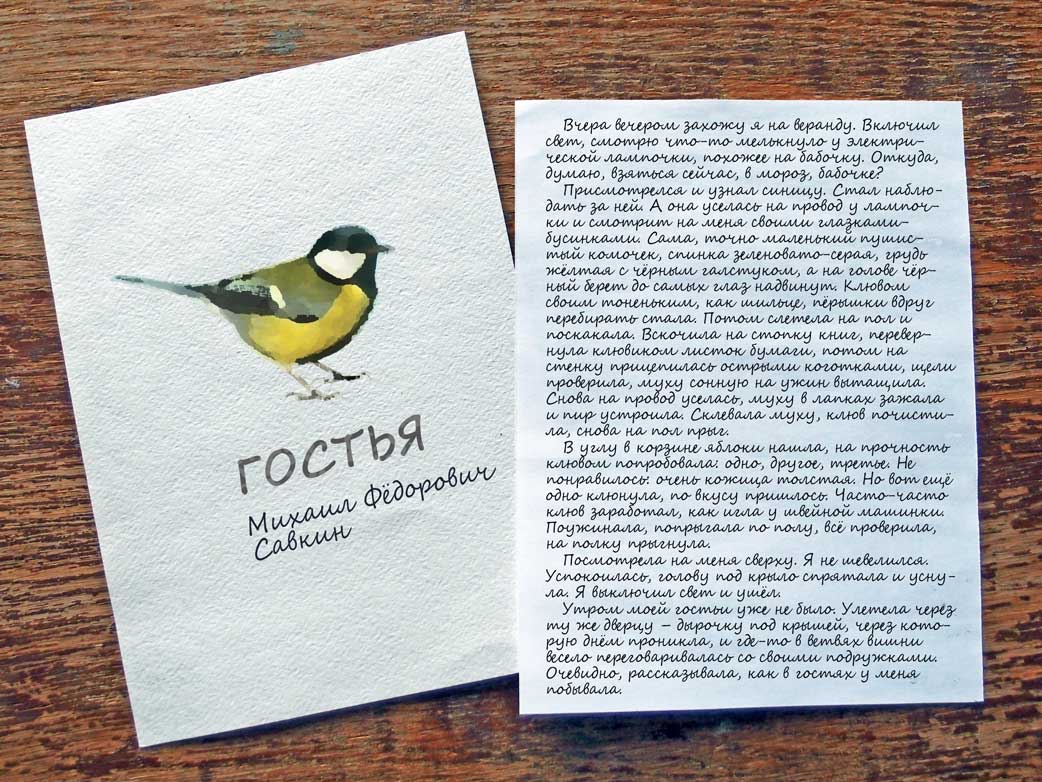 ГОСТЬЯ
Михаил Фёдорович
Савкин
Вчера вечером захожу я на веранду. Включил
свет, смотрю что-то мелькнуло у электри-
ческой лампочки, похожее на бабочку. Откуда,
думаю, взяться сейчас, в мороз, бабочке?
Присмотрелся и узнал синицу. Стал наблю-
дать за ней. А она уселась на провод у лампоч-
ки и смотрит на меня своими глазками-
бусинками. Сама, точно маленький пушис-
тый комочек, спинка зеленовато-серая, грудь
жёлтая с чёрным галстуком, а на голове чёр-
ный берет до самых глаз надвинут. Клювом
своим тоненьким, как шильце, пёрышки вдруг
перебирать стала. Потом слетела на пол и
поскакала. Вскочила на стопку книг, перевер-
нула клювиком листок бумаги, потом на
стенку прицепилась острыми коготками, щели
проверила, муху сонную на ужин вытащила.
Снова на провод уселась, муху в лапках зажала
и пир устроила. Склевала муху, клюв почисти-
ла, снова на пол прыг.
В углу в корзине яблоки нашла, на прочность
клювом попробовала: одно, другое, третье. Не
понравилось: очень кожица толстая. Но вот ещё
одно клюнула, по вкусу пришлось. Часто-часто
клюв заработал, как игла у швейной машинки.
Поужинала, попрыгала по полу, всё проверила,
на полку прыгнула.
Посмотрела на меня сверху. Я не шевелился.
Успокоилась, голову под крыло спрятала и усну-
ла. Я выключил свет и ушёл.
Утром моей гостьи уже не было. Улетела через
ту же дверцу – дырочку под крышей, через кото-
рую днём проникла, и где-то в ветвях вишни
весело переговаривалась со своими подружками.
Очевидно, рассказывала, как в гостях у меня
побывала.